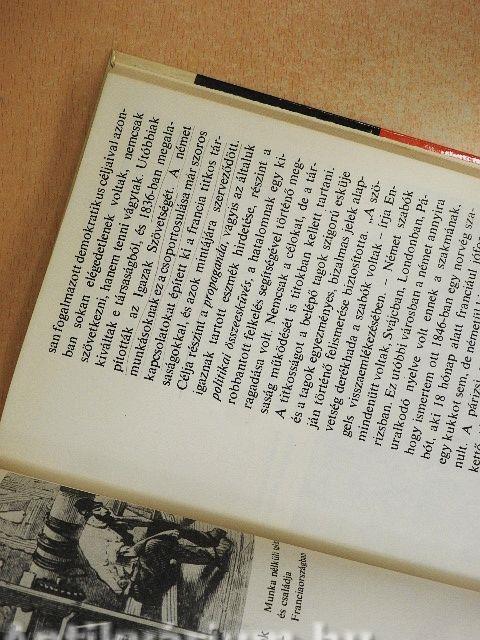 san fogalmazott demokratikus céljaival azon-
ban sokan elégedetlenek voltak, nemcsak
szövetkezni, hanem tenni vágytak. Utóbbiak
kiváltak e társaságból, és 1836-ban megala-
pították az Igazak Szövetségét. A német
munkásoknak ez a csoportosulása már szoros
kapcsolatokat épített ki a francia titkos tár-
saságokkal, és azok mintájára szerveződött.
Célja részint a propaganda, vagyis az általuk
igaznak tartott eszmék hirdetése, részint a
politikai összeesküvés, a hatalomnak egy ki-
robbantott felkelés segítségével történő meg-
ragadása volt. Nemcsak a célokat, de a tár-
saság működését is titokban kellett tartani.
A titkosságot a belépő tagok szigorú esküje
és a tagok egyezményes, bizalmas jelek alap-
ján történő felismerése biztosította. „A szö-
vetség derékhada a szabók voltak – írja En-
gels visszaemlékezésében. – Német szabók
mindenütt voltak, Svájcban, Londonban, Pá-
rizsban. Ez utóbbi városban a német annyira
uralkodó nyelve volt ennek a szakmának,
hogy ismertem ott 1846-ban egy norvég sza-
bót, aki 18 hónap alatt franciául jófor
egy kukkot sem, de németül
nult. A párizsi
Munka nélküli
és családja
Franciaországban